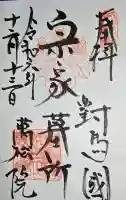 奉拝
對馬國
宗家墓所
萬松院
令和六年
十一月十三日